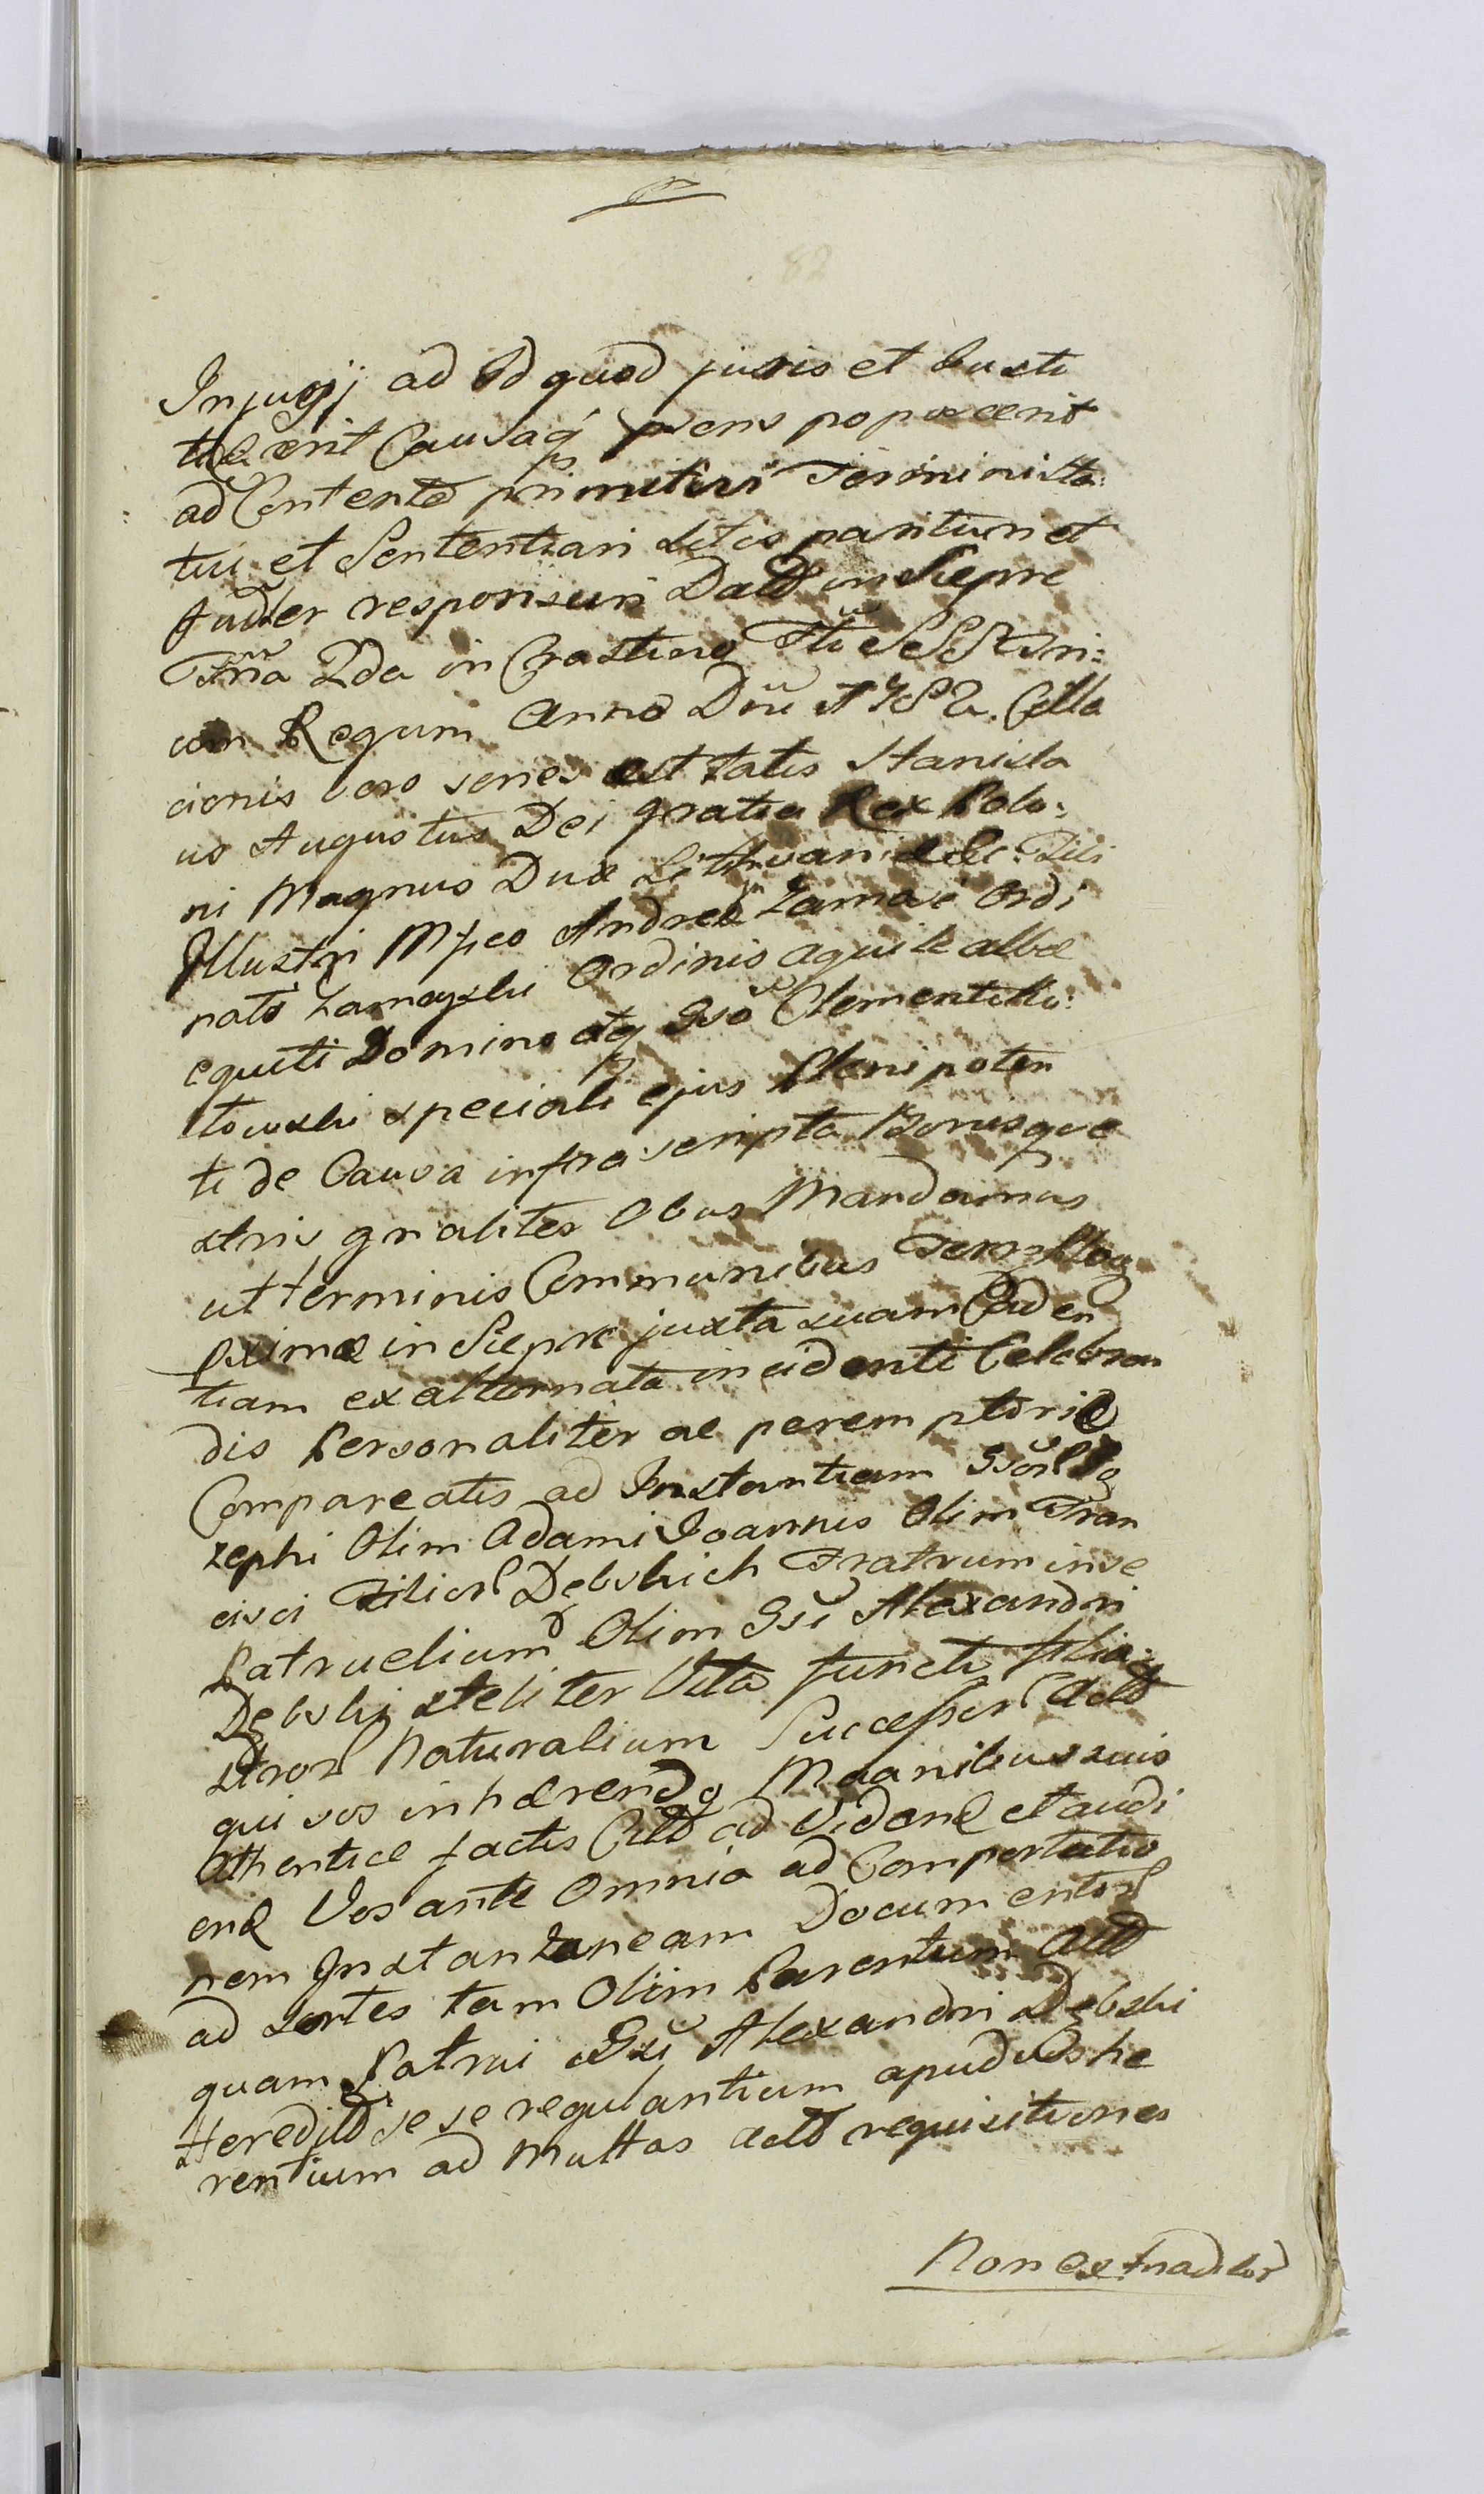 82
Injungj ad Id quod juris et Justi
tiae erit Causaq prens poposcerit
ad Contenta primitivi Termini Sta:
tui et Sententiari Litis paritum et
Judler responsuri Datt in Sieprc
Fria 2da in Crastino Fti SSS Tri:
um Regum Anno Dni 1782. Cita
cionis vero series est talis Stanisla
us Augustus Dei gratia Rex Polo:
ni Magnus Dux Lithvaniae &c: Tibi
Illustri Mfco Andreae in Zamość Ordi
nato Zamoyski Ordinis Aquilae albae
equiti Domino atq Gso Clementi Ko:
towski speciali ejus Plenipoten
ti de Causa infrascripta Bonisque
stris gnaliter Obus Mandamus
ut terminis Communibus Terr Ploc
pximae in Sieprc juxta suam Caden
tiam ex alternata incidenti Celebran
dis Personaliter ac peremptorie
Compareatis ad Instantiam Gsor Jo
zephi Olim Adami Joannis Olim Fran
cisci Filior Dębskich Fratrum inse
Patruelium Olim Gsi Alexandri
Dębski steliter Vita functi filia:
stror Naturalium Successor Actt
qui vos inhaerendo Maanibus suis
Athentice factis Citt ad Videnl et audi
enl Vos ante Omnia ad Comportatio
nem Instantaneam Documentor
ad sortes tam Olim Parentum Actt
quam Patrui Gsi Alexandri Dębski
Hereditt se se regulantium apud Vos he
rentium ad Multas actt requisitiones
Non extraditor